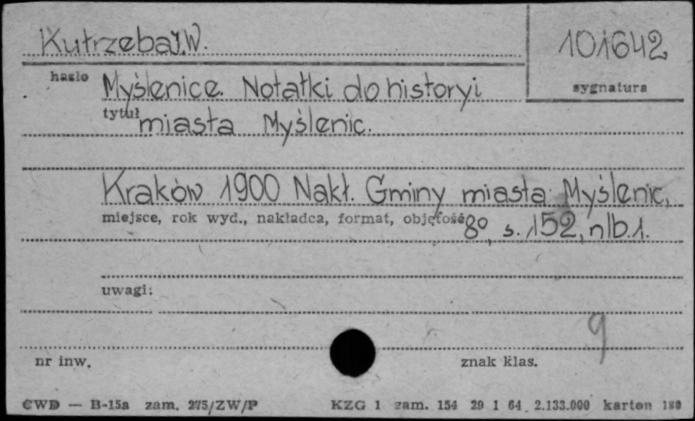 Kutrzeba J.W.
101642
hasło
sygnatura
Myślenice. Notatki do historyi
tytuł
miasta Myślenic.
Kraków 1900 Nakł. Gminy miasta Myślenic,
miejsce, rok wyd., nakładca, format, objętość
8º, s. 152, nlb.1.
uwagi:
9
nr inw.
znak klas.
CWD — B-15a zam. 275/ZW/P
KZG 1 zam. 154 29 1 64 2.133.000 karton 180